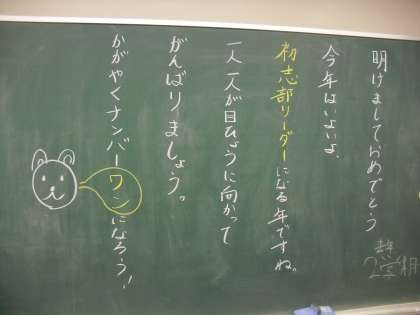 明けましておめでとう
今年はいよいよ、
初志部リーダーになる年ですね。
一人一人が目ひょうに向かって
がんばりましょう。
かがやくナンバーワンになろう!
2学期